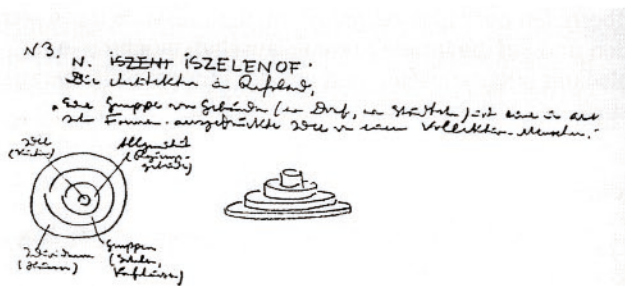 N3
N. ISZENT ISZELENOF:
Die Architektur in Rußland,
"Eine Gruppe von Gebäuden (ein Dorf, ein Städtchen) ist eine in
Formen ausgedrückte Idee von einem Kollektiv-Menschen."
Idee
(Kirche)
(Regierungs-
gebäude)
Individuum
(Häuser)
Gruppen
(Schulen,
Kaufhäuser)